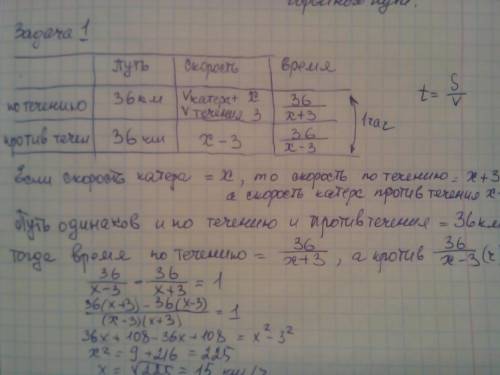 обратном пути.
Задача 1
Путь Скорость Время
по течению 36 км Vкатера+ x Vтечения 3 36/(x+3)
против течен 36 км x-3 36/(x-3) 1 час
t = S/V
Если скорость катера = x, то скорость по течению = x+3
а скорость катера против течения x-
Путь одинаков и по течению и против течения = 36 км
тогда время по течению = 36/(x+3), а против 36/(x-3) (ч
36/(x-3) - 36/(x+3) = 1
(36(x+3) - 36(x-3))/((x-3)(x+3)) = 1
36x + 108 - 36x + 108 = x² - 3²
x² = 9 + 216 = 225
x = √225 = 15 км/ч